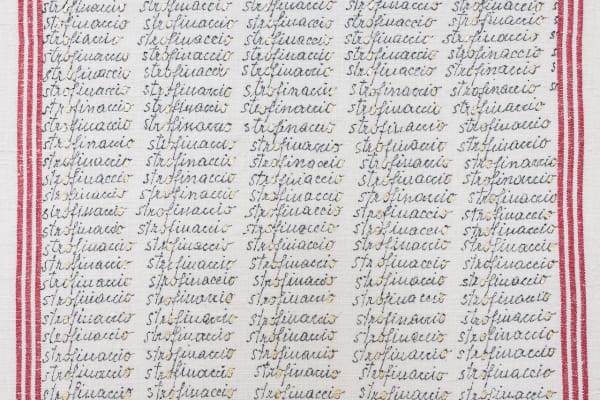 strofinaccio strofinaccio strofinaccio strofinaccio strofinaccio
strofinaccio strofinaccio strofinaccio strofinaccio strofinaccio
strofinaccio strofinaccio strofinaccio strofinaccio strofinaccio
strofinaccio strofinaccio strofinaccio strofinaccio strofinaccio
strofinaccio strofinaccio strofinaccio strofinaccio strofinaccio
strofinaccio strofinaccio strofinaccio strofinaccio strofinaccio
strofinaccio strofinaccio strofinaccio strofinaccio strofinaccio
strofinaccio strofinaccio strofinaccio strofinaccio strofinaccio
strofinaccio strofinaccio strofinaccio strofinaccio strofinaccio
strofinaccio strofinaccio strofinaccio strofinaccio strofinaccio
strofinaccio strofinaccio strofinaccio strofinaccio strofinaccio
strofinaccio strofinaccio strofinaccio strofinaccio strofinaccio
strofinaccio strofinaccio strofinaccio strofinaccio strofinaccio
strofinaccio strofinaccio strofinaccio strofinaccio strofinaccio
strofinaccio strofinaccio strofinaccio strofinaccio strofinaccio
strofinaccio strofinaccio strofinaccio strofinaccio strofinaccio
strofinaccio strofinaccio strofinaccio strofinaccio strofinaccio
strofinaccio strofinaccio strofinaccio strofinaccio strofinaccio
strofinaccio strofinaccio strofinaccio strofinaccio strofinaccio
strofinaccio strofinaccio strofinaccio strofinaccio strofinaccio
strofinaccio strofinaccio strofinaccio strofinaccio strofinaccio
strofinaccio strofinaccio strofinaccio strofinaccio strofinaccio
strofinaccio strofinaccio strofinaccio strofinaccio strofinaccio